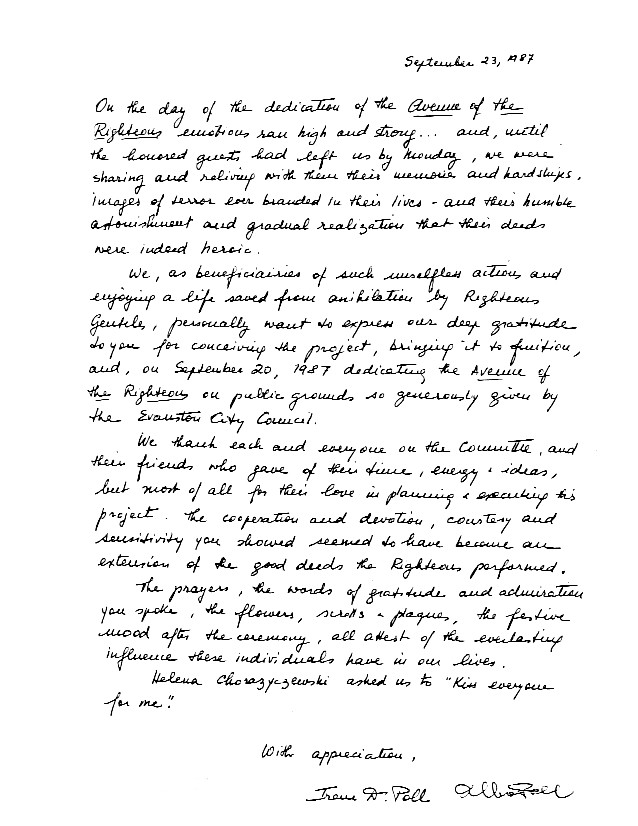 September 23, 1987
On the day of the dedication of the Avenue of the
Righteous emotions ran high and strong... and, until
the honored guests had left us by Monday, we were
sharing and reliving with them their memories and hardships,
images of terror ever branded in their lives - and their humble
astonishment and gradual realization that their deeds
were indeed heroic.
We, as beneficiairies of such unselfless actions and
enjoying a life saved from anihilation by Righteous
Gentiles, personally want to express our deep gratitude
to you for conceiving the project, bringing it to fruition,
and, on September 20, 1987 dedicating the Avenue of
the Righteous on public grounds so generously given by
the Evanston City Council.
We thank each and everyone on the Committee, and
their friends who gave of their time, energy & ideas,
but most of all for their love in planning & executing this
project. The cooperation and devotion, courtesy and
sensitivity you showed seemed to have become an
extension of the good deeds the Righteous performed.
The prayers, the words of gratitude and admiration
you spoke, the flowers, scrolls & plaques, the festive
mood after the ceremony, all attest of the everlasting
influence these individuals have in our lives.
Helena Chorazyczewski asked us to "Kiss everyone
for me".
With appreciation,
Irene D. Poll